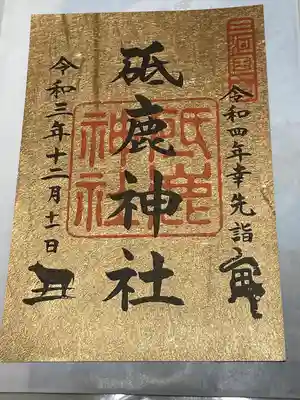 三河国一
令和四年幸先詣
砥鹿神社
砥鹿神社
令和三年十二月十一日